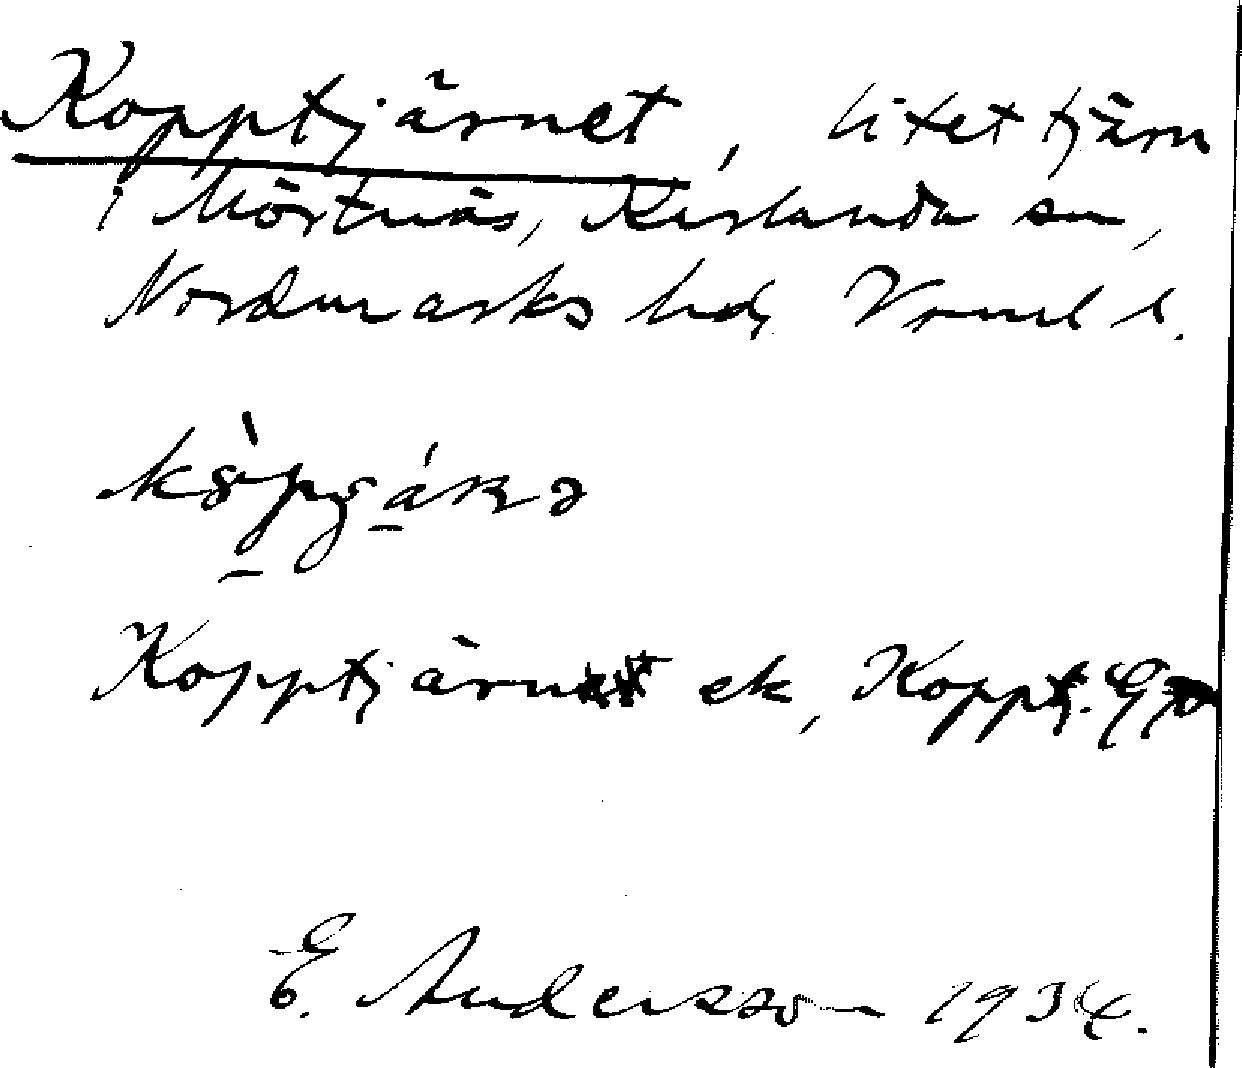 Kopptjärnet, litet tjärn
i Mörtnäs, Karlanda sn,
Nordmarks hd, Vrml l.
Kopptjärnet ek, Koppt.
E. Andersson 1934.